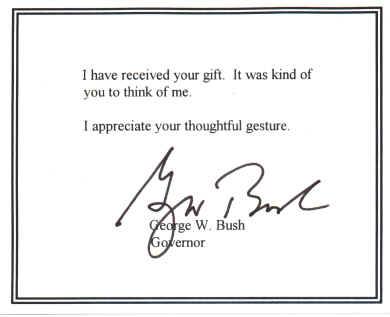 I have received your gift. It was kind of
you to think of me.
I appreciate your thoughtful gesture.
G W Bush
George W. Bush
Governor